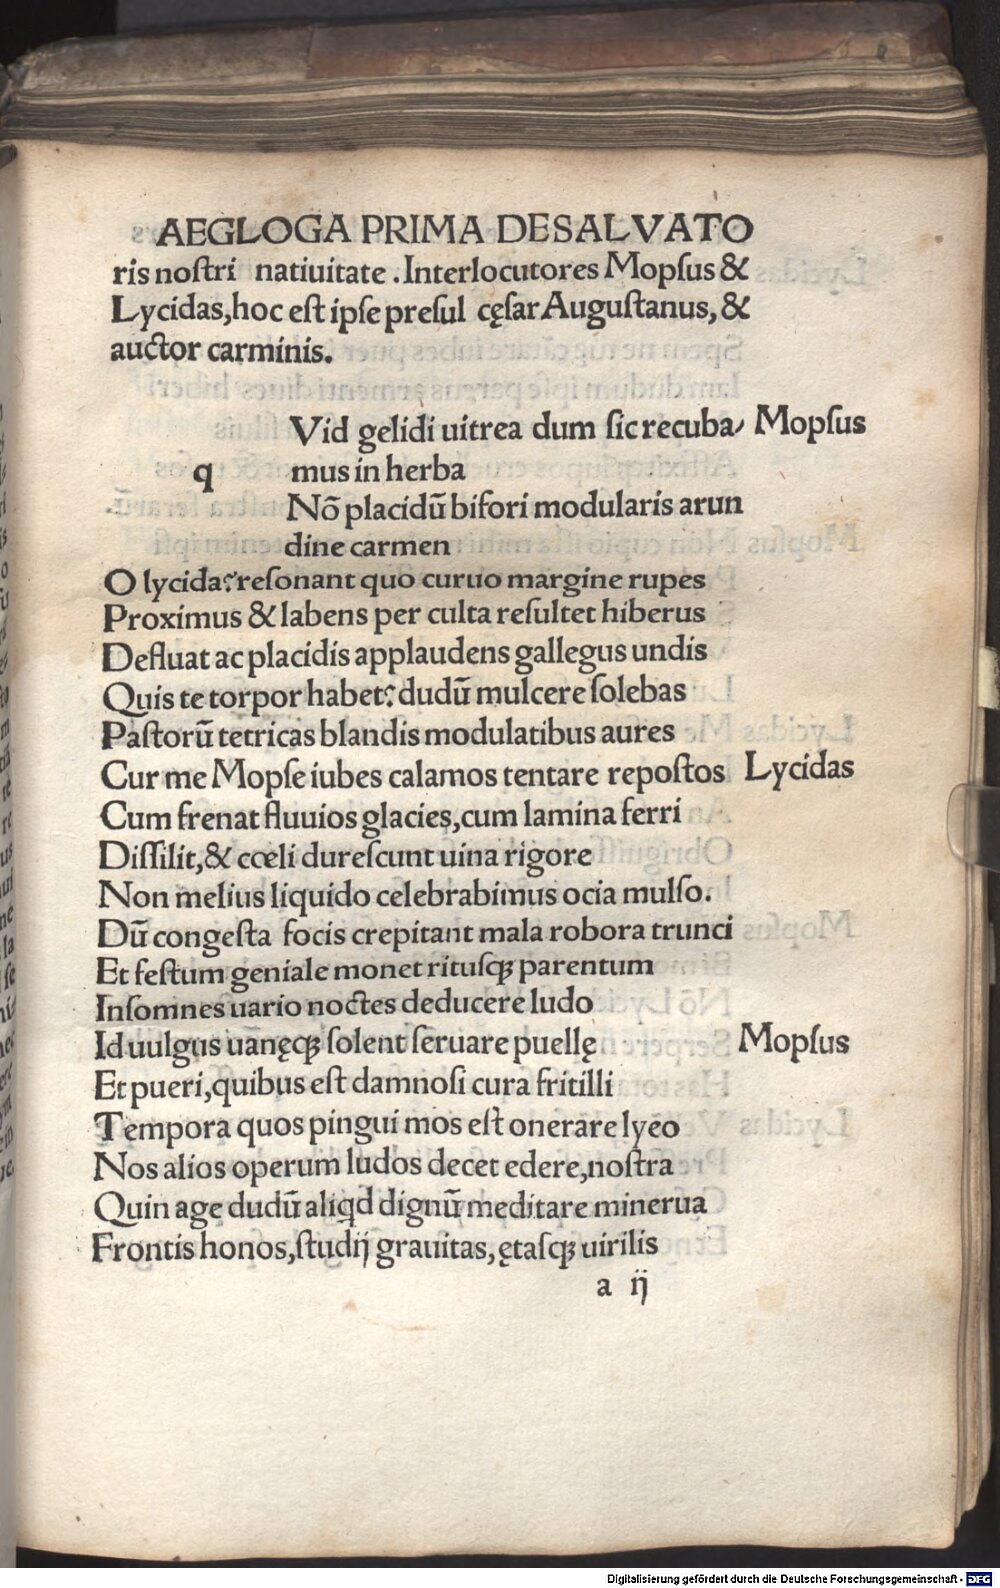 AEGLOGA PRIMA DE SALVATO
ris noſtri natiuitate. Interlocutores Mopſus &
Lycidas, hoc eſt ipſe preſul cęſar Auguſtanus, &
auctor carminis.
Vid gelidi uitrea dum ſic recuba⸗ Mopſus
q mus in herba
Nō placidū bifori modularis arun
dine carmen
O lycida? reſonant quo curuo margine rupes
Proximus & labens per culta reſultet hiberus
Defluat ac placidis applaudens gallegus undis
Quis te torpor habet? dudū mulcere ſolebas
Paſtorū tetricas blandis modulatibus aures
Cur me Mopſe iubes calamos tentare repoſtos Lycidas
Cum frenat fluuios glacies, cum lamina ferri
Diſſilit, & cœli dureſcunt uina rigore
Non melius liquido celebrabimus ocia mulſo.
Dū congeſta focis crepitant mala robora trunci
Et feſtum geniale monet rituſqꝫ parentum
Inſomnes uario noctes deducere ludo
Id uulgus uanęqꝫ ſolent ſeruare puellę Mopſus
Et pueri, quibus eſt damnoſi cura fritilli
Tempora quos pingui mos eſt onerare lyeo
Nos alios operum ludos decet edere, noſtra
Quin age dudū aliqd dignū meditare minerua
Frontis honos, ſtudij grauitas, ętaſqꝫ uirilis
a ij
Digitalisierung gefördert durch die Deutsche Forschungsgemeinschaft - DFG